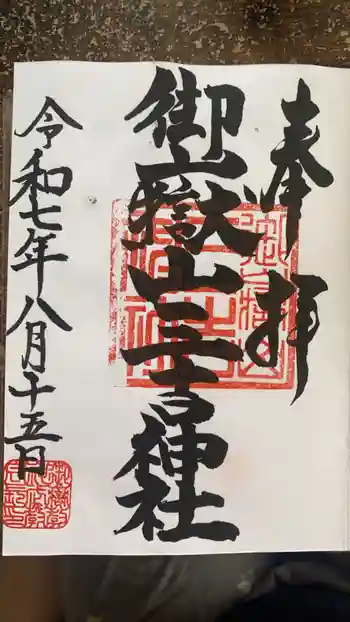 奉拝
御嶽山三吉神社
令和七年八月十五日